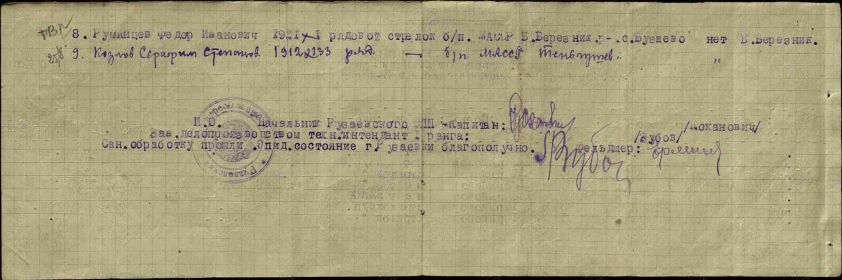 8. Румянцев Федор Иванович 1921 рядовой стрелок б/п. МАССР Б.Березник. р- .с.Бузаево нет Б.Березник.
9. Козлов Серафим Степанов. 1912 233 ряд. — б/п МАССР Теньгушев. "
И.О. Начальник Рузаевского ВПП -Капитан: /Моханович/
Зав.делопроизводством техн.интендант ранга: /Зубов/
Сан.обработку прошли .Эпид.состояние г.Рузаевки благополучно. Фельдшер: